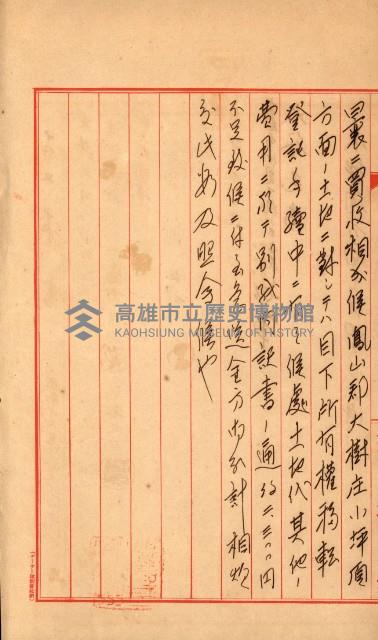 曩ニ買収相成候鳳山郡大樹庄小坪頂
方面ノ土地ニ対シテハ目下所有権移転
登記手続中ニ有之候処土地代其他ノ
費用ニ於テ別紙計証書ノ通
不足致候ニ付至急送金方御取計相煩
度此段及照会候也
高雄市立歷史博物館
KAOHSIUNG MUSEUM OF HISTORY